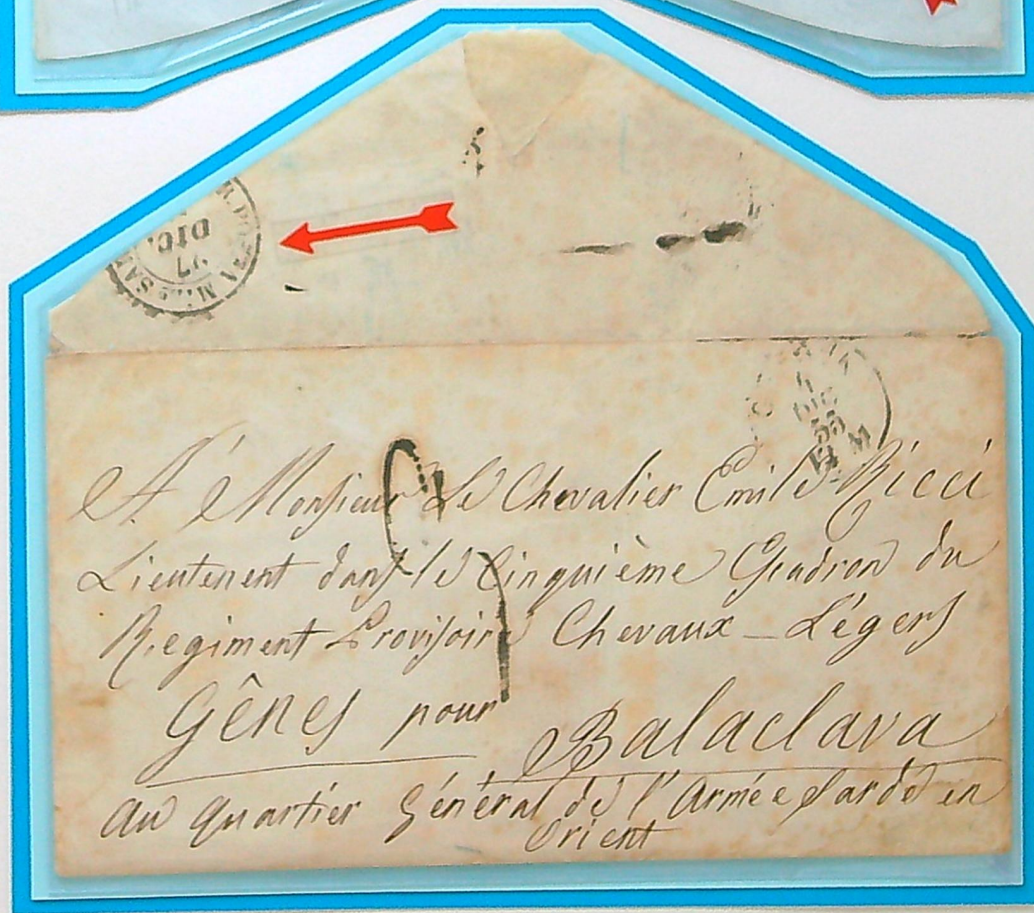 R. POSTA MILE SAR
27
DIC.
4
DIC
55
M
A Monsieur Le Chevalier Emile Ricci
Lieutenent dans le Cinquième Escadron du
Regiment Provisoire Chevaux - Légers
Gênes pour Balaclava
Au Quartier Général de l'Armée Sarde en
Orient